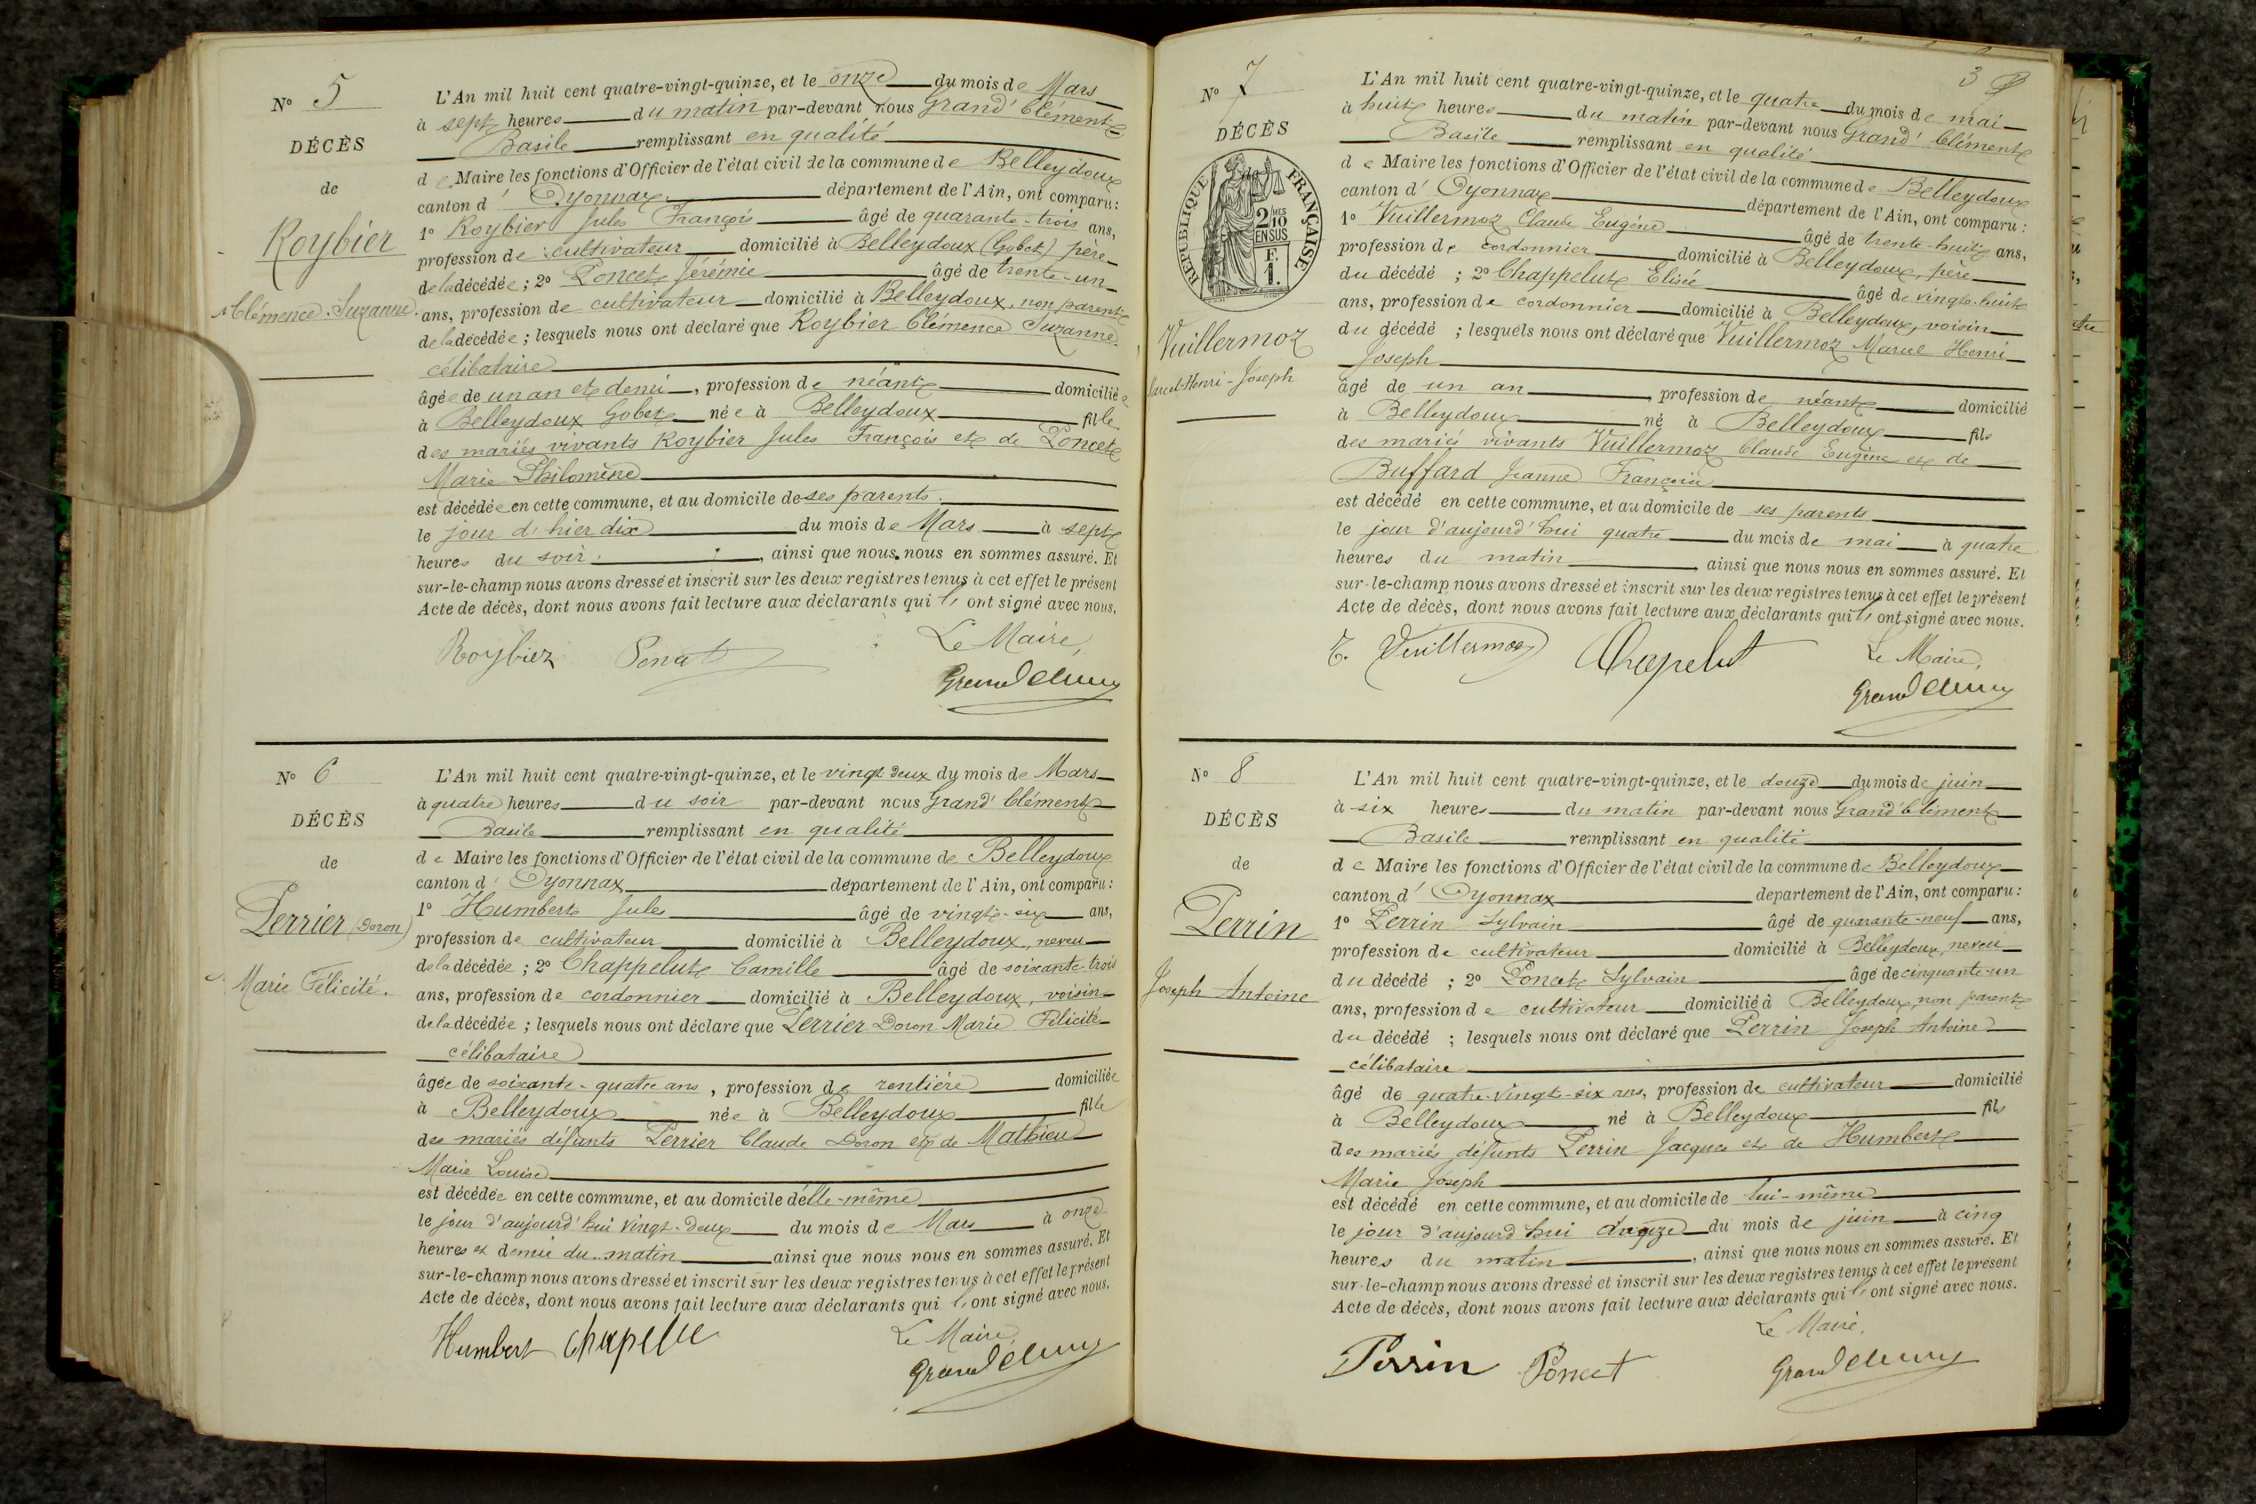 N° 5
DÉCÈS
de
Roybier
Clémence Suzanne.
L'An mil huit cent quatre-vingt-quinze, et le onze du mois de Mars
à sept heures du matin par-devant nous Grand' Clément
Basile remplissant en qualité
de Maire les fonctions d'Officier de l'état civil de la commune de Belleydoux
canton d' Oyonnax département de l'Ain, ont comparu:
1° Roybier Jules François âgé de quarante-trois ans,
profession de cultivateur domicilié à Belleydoux (Gobet) père
de la décédée; 2° Poncet Jérémie âgé de trente-un
ans, profession de cultivateur domicilié à Belleydoux, non parent
de la décédée; lesquels nous ont déclaré que Roybier Clémence Suzanne
célibataire
âgée de un an et demi, profession de néant domiciliée
à Belleydoux Gobet née à Belleydoux fille
des mariés vivants Roybier Jules François et de Poncet
Marie Philomène
est décédée en cette commune, et au domicile de ses parents.
le jour d'hier dix du mois de Mars à sept
heures du soir, ainsi que nous nous en sommes assuré. Et
sur-le-champ nous avons dressé et inscrit sur les deux registres tenus à cet effet le présent
Acte de décès, dont nous avons fait lecture aux déclarants qui ont signé avec nous.
Roybier Poncet Le Maire,
Grand Clément
N° 6
DÉCÈS
de
Perrier (Doron)
Marie Félicité.
L'An mil huit cent quatre-vingt-quinze, et le vingt deux du mois de Mars
à quatre heures du soir par-devant nous Grand' Clément
Basile remplissant en qualité
de Maire les fonctions d'Officier de l'état civil de la commune de Belleydoux
canton d' Oyonnax département de l'Ain, ont comparu:
1° Humbert Jules âgé de vingt-six ans,
profession de cultivateur domicilié à Belleydoux, neveu
de la décédée; 2° Chappelut Camille âgé de soixante-trois
ans, profession de cordonnier domicilié à Belleydoux, voisin
de la décédée; lesquels nous ont déclaré que Perrier Doron Marie Félicité
célibataire
âgée de soixante-quatre ans, profession de rentière domiciliée
à Belleydoux née à Belleydoux fille
des mariés défunts Perrier Claude Doron et de Mathieu
Marie Louise
est décédée en cette commune, et au domicile d'elle-même
le jour d'aujourd'hui vingt-deux du mois de Mars à onze
heures et demie du matin ainsi que nous nous en sommes assuré. Et
sur-le-champ nous avons dressé et inscrit sur les deux registres tenus à cet effet le présent
Acte de décès, dont nous avons fait lecture aux déclarants qui ont signé avec nous.
Humbert Chapelu Le Maire,
Grand Clément
3
N° 7
DÉCÈS
RÉPUBLIQUE FRANÇAISE
2/10 MES EN SUS
F. 1.
Vuillermoz
Marcel-Henri-Joseph
L'An mil huit cent quatre-vingt-quinze, et le quatre du mois de mai
à huit heures du matin par-devant nous Grand' Clément
Basile remplissant en qualité
de Maire les fonctions d'Officier de l'état civil de la commune de Belleydoux
canton d' Oyonnax département de l'Ain, ont comparu:
1° Vuillermoz Claude Eugène âgé de trente-huit ans,
profession de cordonnier domicilié à Belleydoux, père
du décédé; 2° Chappelut Elisée âgé de vingt-huit
ans, profession de cordonnier domicilié à Belleydoux, voisin
du décédé; lesquels nous ont déclaré que Vuillermoz Marcel Henri
Joseph
âgé de un an, profession de néant domicilié
à Belleydoux né à Belleydoux fils
des mariés vivants Vuillermoz Claude Eugène et de
Buffard Jeanne Françoise
est décédé en cette commune, et au domicile de ses parents
le jour d'aujourd'hui quatre du mois de mai à quatre
heures du matin, ainsi que nous nous en sommes assuré. Et
sur-le-champ nous avons dressé et inscrit sur les deux registres tenus à cet effet le présent
Acte de décès, dont nous avons fait lecture aux déclarants qui ont signé avec nous.
Vuillermoz Chapelut Le Maire,
Grand Clément
N° 8
DÉCÈS
de
Perrin
Joseph Antoine
L'An mil huit cent quatre-vingt-quinze, et le douze du mois de juin
à six heures du matin par-devant nous Grand' Clément
Basile remplissant en qualité
de Maire les fonctions d'Officier de l'état civil de la commune de Belleydoux
canton d' Oyonnax département de l'Ain, ont comparu:
1° Perrin Sylvain âgé de quarante-neuf ans,
profession de cultivateur domicilié à Belleydoux, neveu
du décédé; 2° Poncet Sylvain âgé de cinquante-un
ans, profession de cultivateur domicilié à Belleydoux, non parent
du décédé; lesquels nous ont déclaré que Perrin Joseph Antoine
célibataire
âgé de quatre-vingt-six ans, profession de cultivateur domicilié
à Belleydoux né à Belleydoux fils
des mariés défunts Perrin Jacques et de Humbert
Marie Joseph
est décédé en cette commune, et au domicile de lui-même
le jour d'aujourd'hui douze du mois de juin à cinq
heures du matin, ainsi que nous nous en sommes assuré. Et
sur-le-champ nous avons dressé et inscrit sur les deux registres tenus à cet effet le présent
Acte de décès, dont nous avons fait lecture aux déclarants qui ont signé avec nous.
Le Maire,
Perrin Poncet Grand Clément